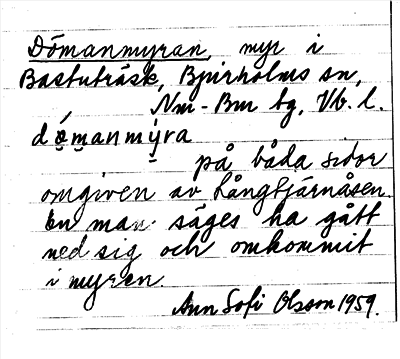 Dömanmyran, myr i
Bastuträsk, Bjurholms sn,
Nm-Bm tg, Vb. l.
dó̤m̤anmý̤ra
på båda sidor
omgiven av Långtjärnåsen.
En man säges ha gått
ned sig och omkommit
i myren.
Ann Sofi Olsson 1959.